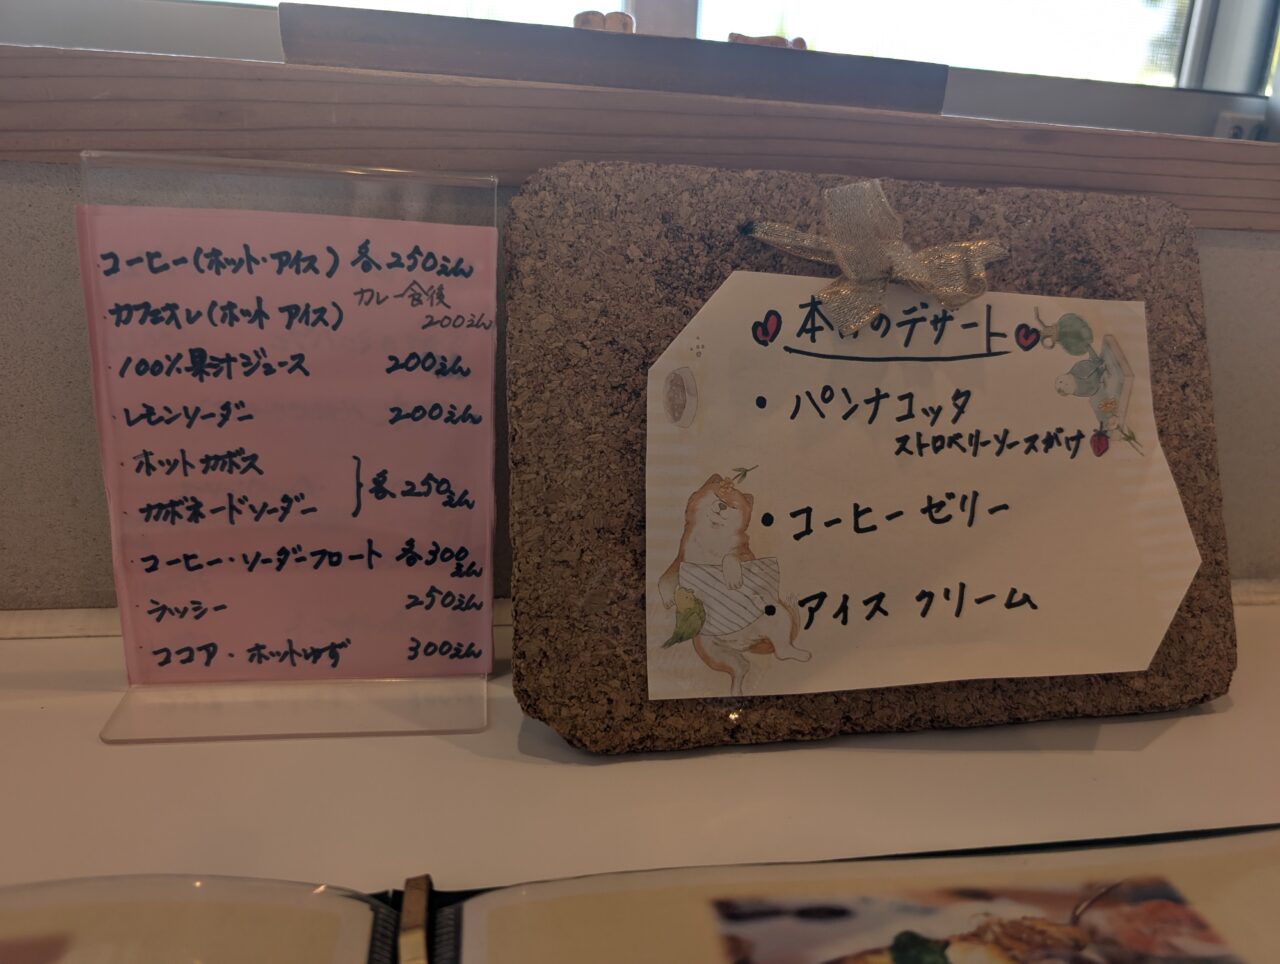 コーヒー(ホット・アイス) 各250えん
カレー食後
200えん
カフェオレ(ホット アイス)
・100%果汁ジュース 200えん
・レモンソーダー 200えん
・ホットカボス
・カボネードソーダー
各250えん
・コーヒー・ソーダーフロート 各300えん
・ラッシー 250えん
・ココア・ホットゆず 300えん
本日のデザート
・パンナコッタ
ストロベリーソースがけ
・コーヒーゼリー
・アイスクリーム